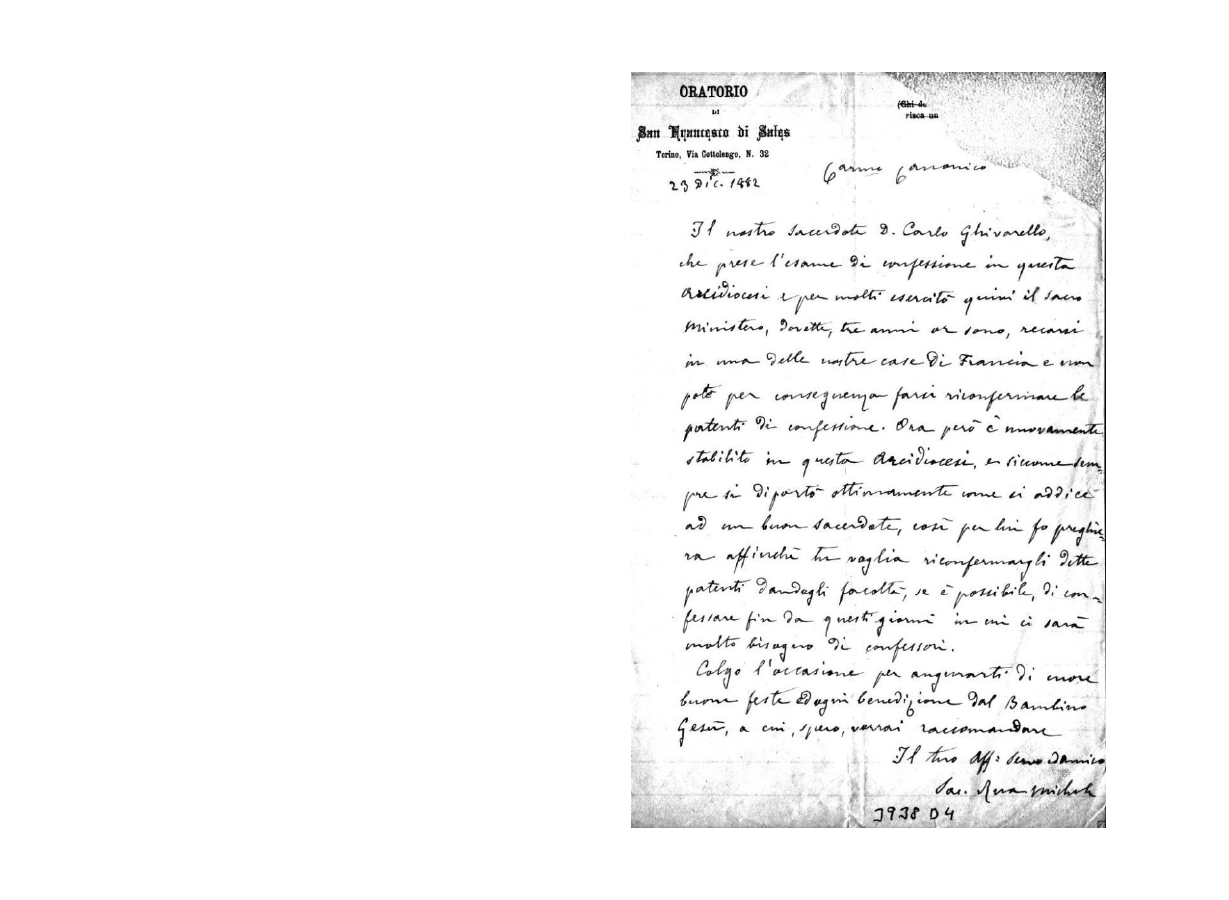 ORATORIO
DI
San Francesco di Sales
Torino, Via Cottolengo, N. 32
23 Dic. 1882
(Chi de
risca un
Carmo Canonico
Il nostro sacerdote D. Carlo Ghivarello,
che prese l'esame di confessione in questa
Arcidiocesi e per molti esercitò quivi il sacro
Ministero, dovette, tre anni or sono, recarsi
in una delle nostre case di Francia e non
potè per conseguenza farsi riconfermare le
patenti di confessione. Ora però è nuovamente
stabilito in questa Arcidiocesi, e siccome sem-
pre si diportò ottimamente come si addice
ad un buon sacerdote, così per lui fo preghie-
ra affinchè tu voglia riconfermargli dette
patenti dandogli facoltà, se è possibile, di con-
fessare fin da questi giorni in cui ci sarà
molto bisogno di confessori.
Colgo l'occasione per augurarti di cuore
buone feste ed ogni benedizione dal Bambino
Gesù, a cui, spero, vorrai raccomandare
Il tuo Aff: servo ed amico
Sac. Rua Michele
3938 D4